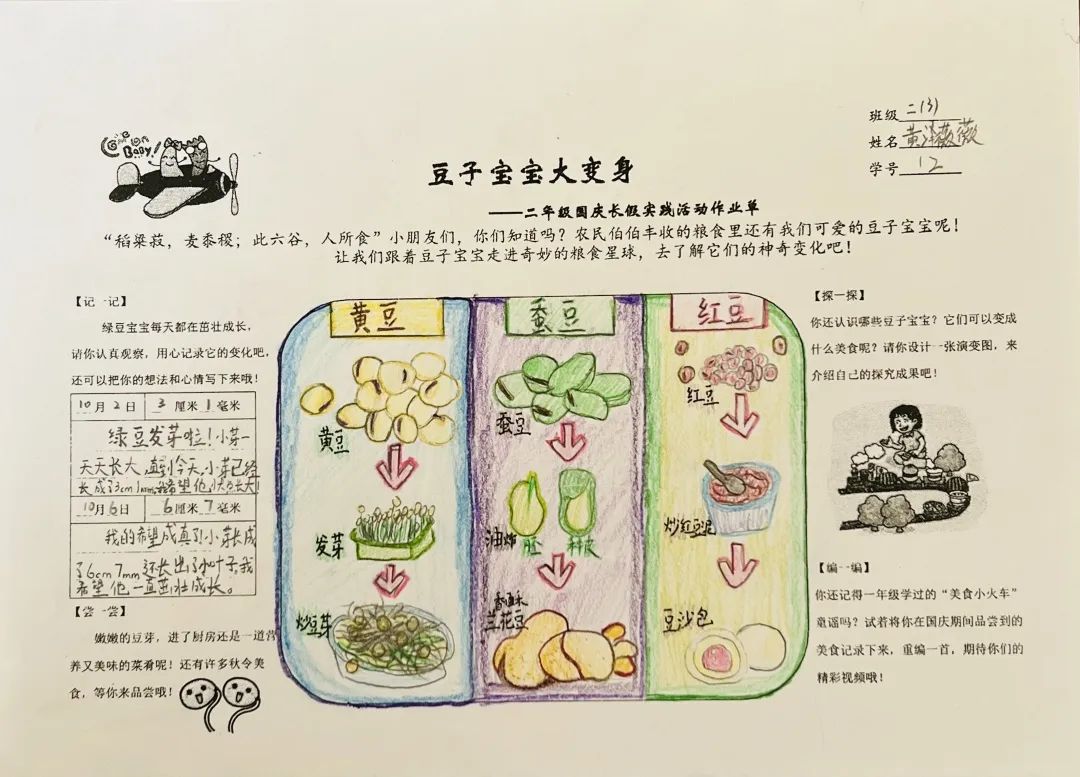 班级 二(3)
姓名 黄泽薇薇
学号 12
Come on
Baby!
豆子宝宝大变身
——二年级国庆长假实践活动作业单
“稻粱菽，麦黍稷；此六谷，人所食”小朋友们，你们知道吗？农民伯伯丰收的粮食里还有我们可爱的豆子宝宝呢！
让我们跟着豆子宝宝走进奇妙的粮食星球，去了解它们的神奇变化吧！
【记一记】
绿豆宝宝每天都在茁壮成长，
请你认真观察，用心记录它的变化吧，
还可以把你的想法和心情写下来哦！
10月2日 3厘米1毫米
绿豆发芽啦！小芽一
天天长大，直到今天，小芽已经
长成了3cm1mm，我希望他快点长大！
10月6日 6厘米7毫米
我的希望成真了！小芽长成
了6cm7mm还长出了小叶子。我
希望他一直茁壮成长。
【尝一尝】
嫩嫩的豆芽，进了厨房还是一道营
养又美味的菜肴呢！还有许多秋令美
食，等你来品尝哦！
黄豆
黄豆
发芽
炒豆芽
蚕豆
蚕豆
油炸
香酥
兰花豆
红豆
红豆
炒红豆泥
豆沙包
【探一探】
你还认识哪些豆子宝宝？它们可以变成
什么美食呢？请你设计一张演变图，来
介绍自己的探究成果吧！
【编一编】
你还记得一年级学过的“美食小火车”
童谣吗？试着将你在国庆期间品尝到的
美食记录下来，重编一首，期待你们的
精彩视频哦！